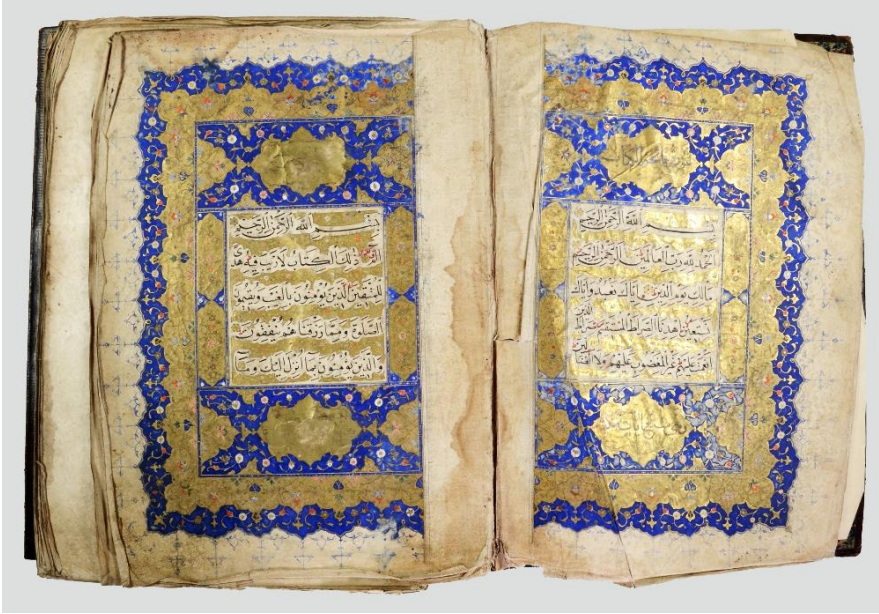 فاتحة الكتاب
بسم الله الرحمن الرحيم
الحمد لله رب العالمين الرحمن الرحيم
مالك يوم الدين اياك نعبد واياك
نستعين اهدنا الصراط المستقيم صراط الذين
انعمت عليهم غير المغضوب عليهم ولا الضالين
بسم الله الرحمن الرحيم
الم ذلك الكتاب لا ريب فيه هدى
للمتقين الذين يؤمنون بالغيب ويقيمون
الصلوة ومما رزقناهم ينفقون
والذين يؤمنون بما انزل اليك وما